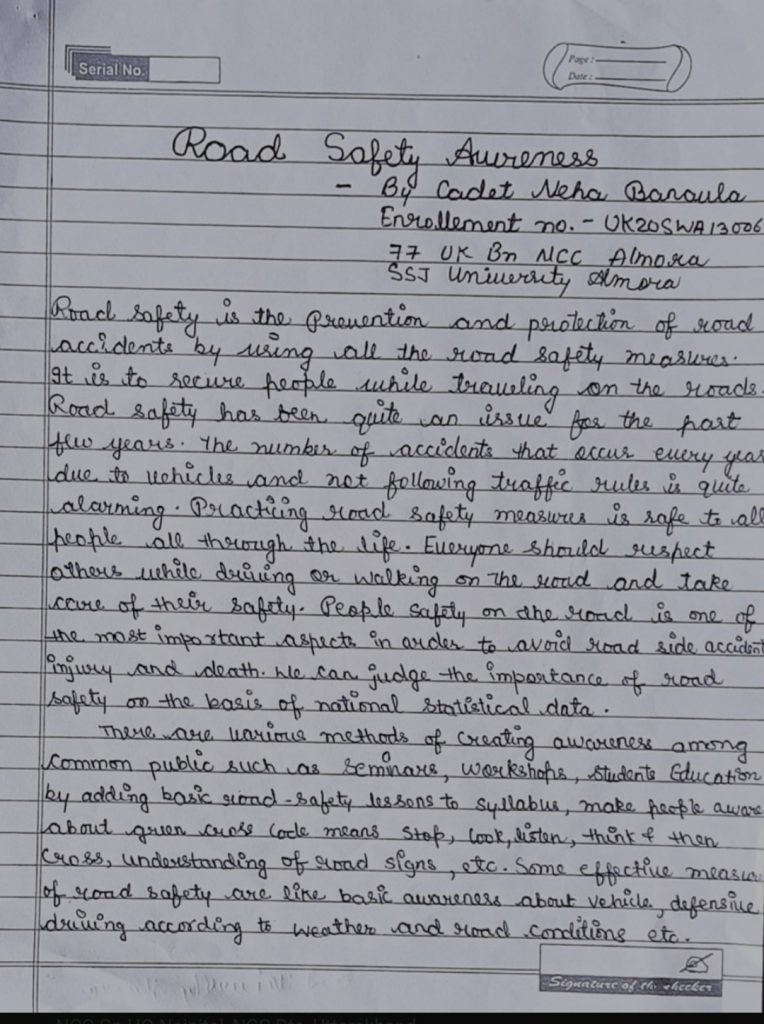 Serial No.
Page :
Date :
Road Safety Awreness
- By Cadet Neha Baraula
Enrollement no. - UK20SWA13006
77 UK Bn NCC Almora
SSJ University Almora
Road safety is the prevention and protection of road
accidents by using all the road safety measures.
It is to secure people while traveling on the roads.
Road safety has been quite an issue for the past
few years. The number of accidents that occur every year
due to vehicles and not following traffic rules is quite
alarming. Practicing road safety measures is safe to all
people all through the life. Everyone should respect
others while driving or walking on the road and take
care of their safety. People safety on the road is one of
the most important aspects in order to avoid road side accident
injury and death. We can judge the importance of road
safety on the basis of national statistical data.
There are various methods of creating awareness among
common public such as seminars, workshops, students Education
by adding basic road-safety lessons to syllabus, make people aware
about green cross code means stop, look, listen, think & then
cross, understanding of road signs, etc. Some effective measure
of road safety are like basic awareness about vehicle, defensive
driving according to weather and road conditions etc.
Signature of the checker